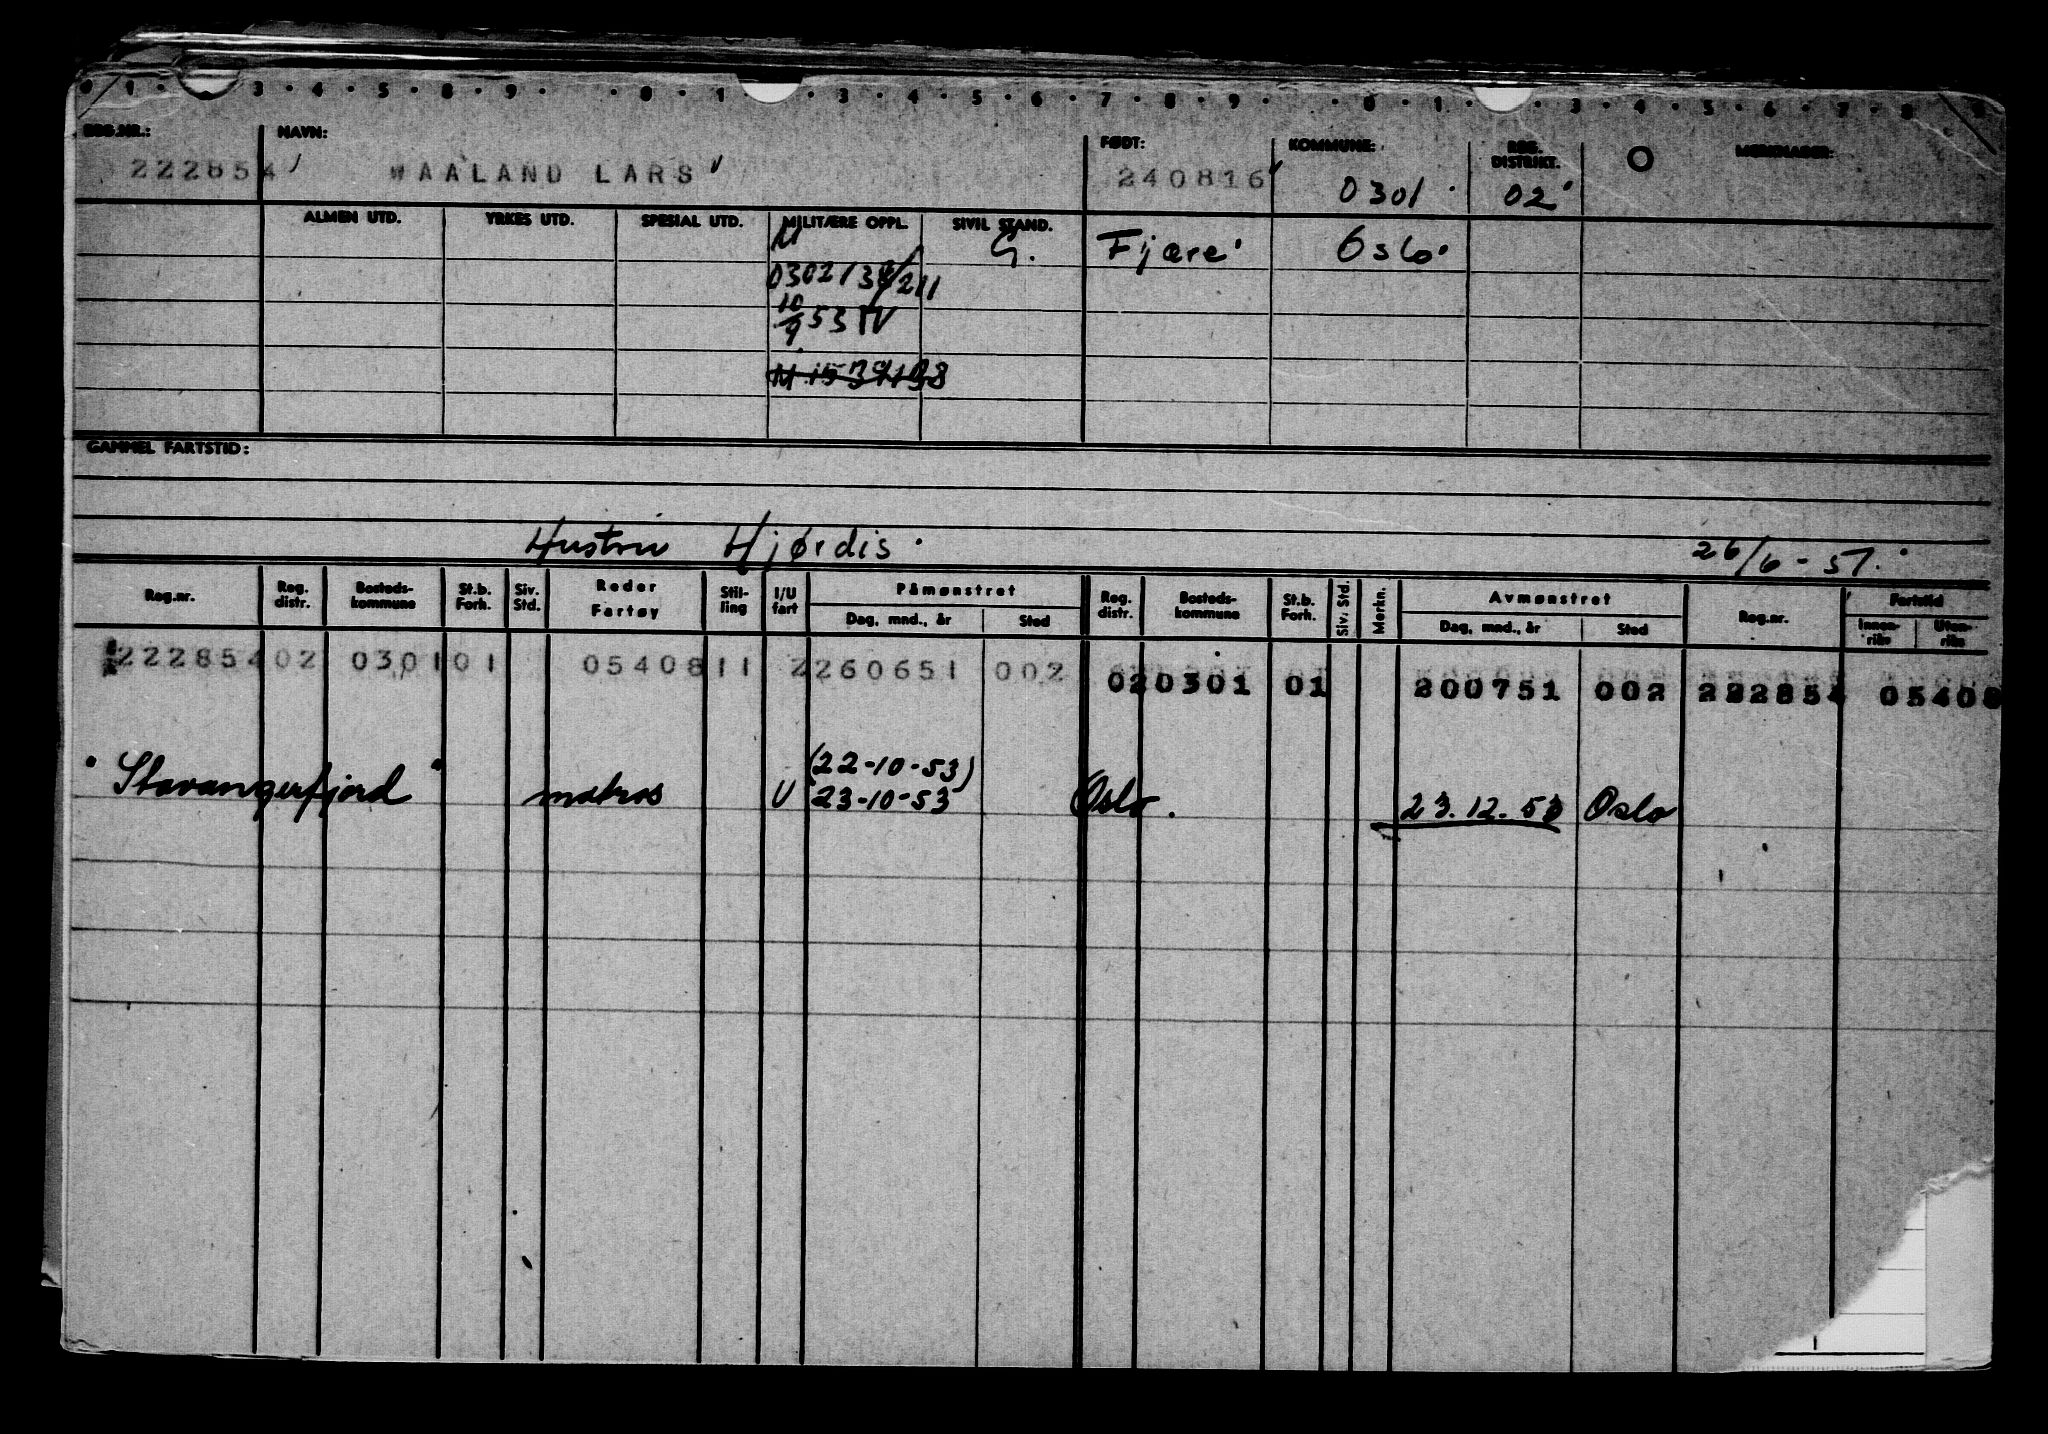 0 1 3 4 5 8 9 0 1 3 4 5 6 7 8 9 0 1 3 4 5 6 7 8 9
REG.NR.: NAVN: FØDT: KOMMUNE: REG. DISTRIKT. MERKNADER:
222854 WAALAND LARS 240816 0301 02 O
ALMEN UTD. YRKES UTD. SPESIAL UTD. MILITÆRE OPPL. SIVIL STAND.
M G. Fjære Oslo
10/9 53 IV
GAMMEL FARTSTID:
Hustru Hjørdis. 26/6-51.
Reg.nr. Reg. distr. Bosteds-kommune St.b. Forh. Siv. Std. Reder Fartøy Stil-ling I/U fart Påmønstret Dag, mnd., år Sted Reg. distr. Bosteds-kommune St.b. Forh. Siv. Std. Merkn. Avmønstret Dag, mnd., år Sted Reg.nr. Fartstid Innen-riks Uten-riks
222854 02 0301 01 05408 11 2 260651 002 02 0301 01 200751 002 222854 05408
(22-10-53)
"Stavangerfjord" matros U 23-10-53 Oslo. 23.12.53 Oslo